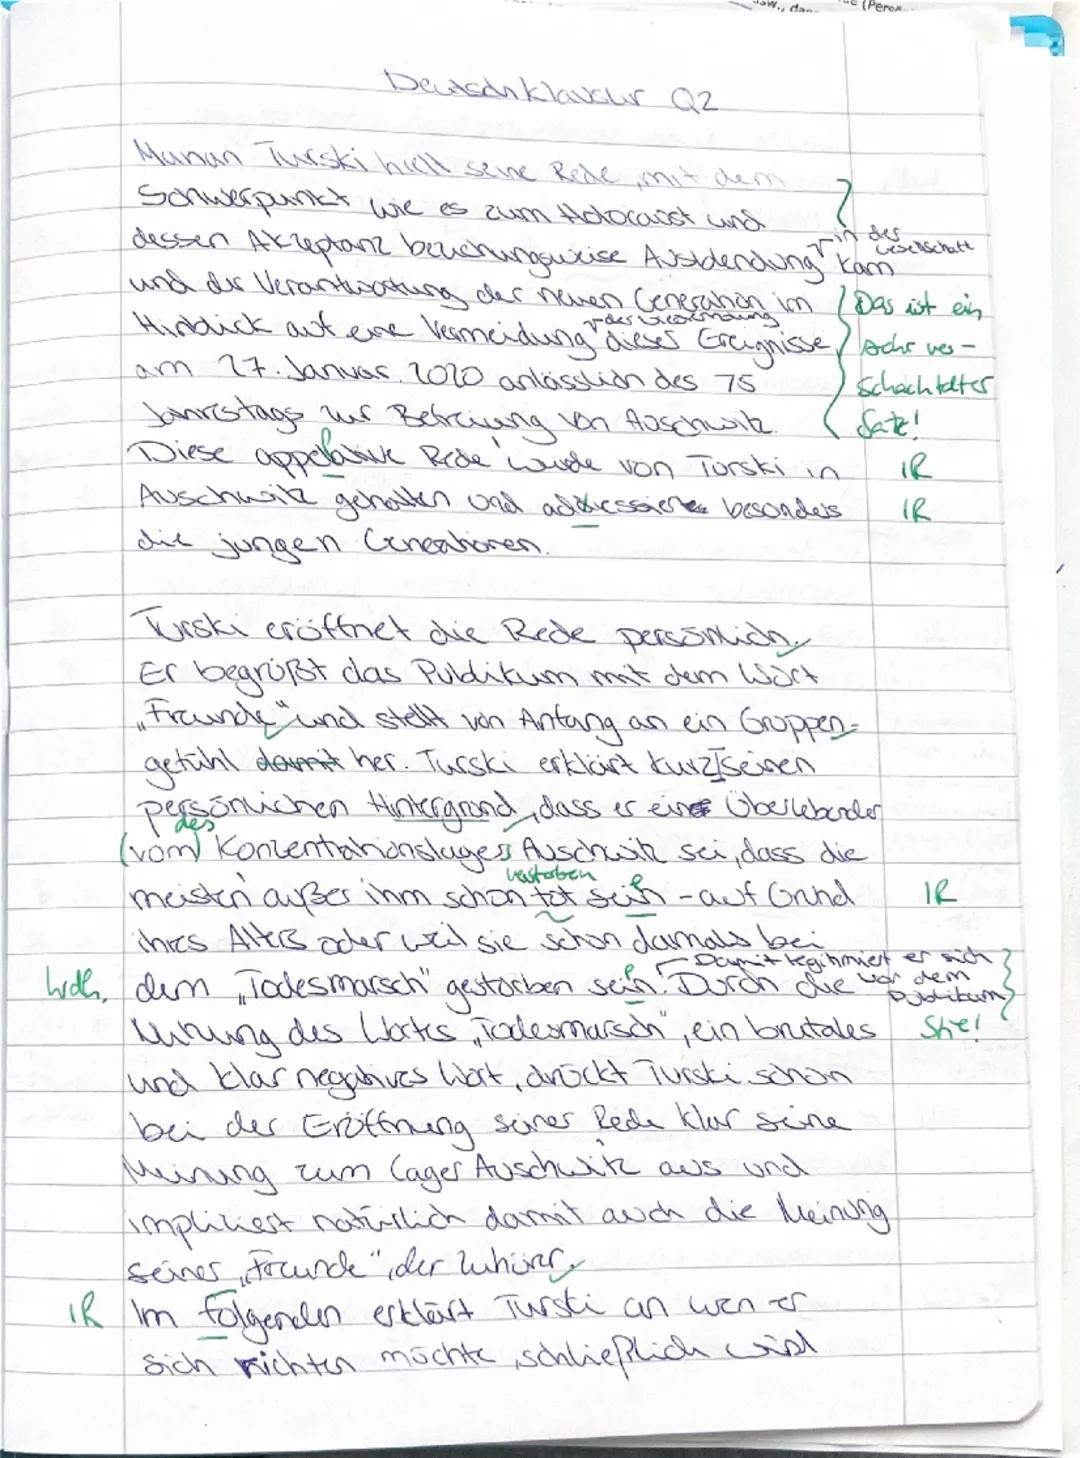 Deutschklausur Q2
Marian Turski hielt seine Rede, mit dem
Schwerpunkt wie es zum Holocaust und
dessen Akzeptanz beziehungsweise Ausblendung in der Gesellschaft kam
und die Verantwortung der neuen Generation im
Hinblick auf eine Vermeidung der dieser Ereignisse,
am 27. Januar. 2020 anlässlich des 75
Jahrestags zur Befreiung von Auschwitz.
Das ist ein
sehr ver-
schachtelter
Satz!
Diese appelative Rede wurde von Turski in
IR
Auschwitz gehalten und addressierte besonders
IR
die jungen Generationen.
Turski eröffnet die Rede persönlich.
Er begrüßt das Publikum mit dem Wort
„Freunde" und stellt von Anfang an ein Gruppen-
gefühl damit her. Turski erklärt kurz seinen
persönlichen Hintergrund, dass er eine Überlebender
des
(vom) Konzentrationslagers Auschwitz sei, dass die
verstorben
meisten außer ihm schon tot sein - auf Grund
IR
ihres Alters oder weil sie schon damals bei
Wdh. dem „Todesmarsch" gestorben sein. Durch die
Damit legitimiert er sich
vor dem
Publikum
Nutzung des Wortes „Todesmarsch", ein brutales
und klar negatives Wort, drückt Turski schon
bei der Eröffnung seiner Rede klar seine
Meinung zum Lager Auschwitz aus und
impliziert natürlich damit auch die Meinung
seiner „Freunde", der Zuhörer.
IR Im folgenden erklärt Turski an wen er
sich richten möchte, schließlich wird